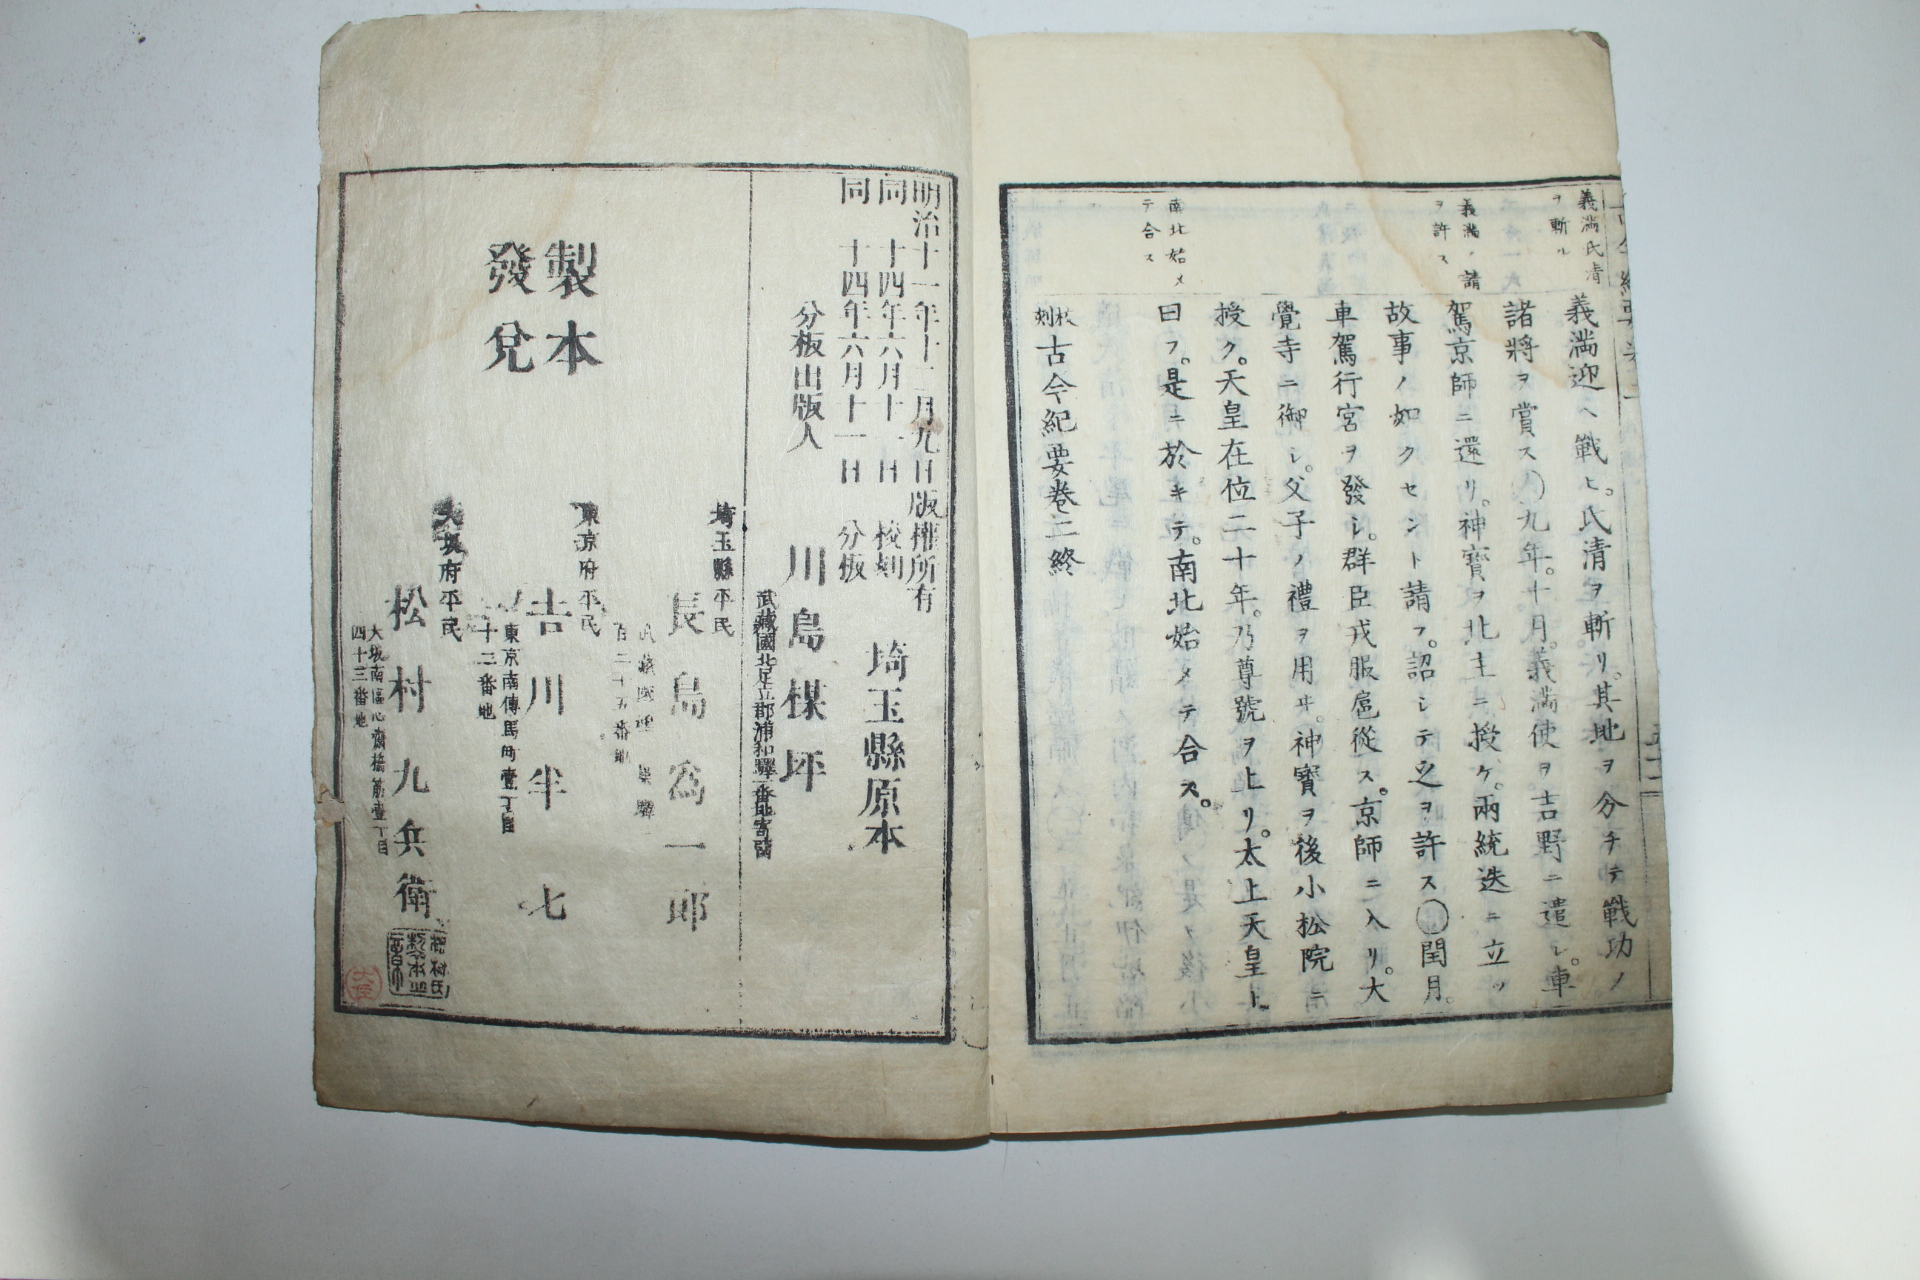 義満氏清
ヲ斬ル
義満ノ請
ヲ許ス
南北始メ
テ合ス
義満迎ヘ戰ヒ。氏清ヲ斬リ。其地ヲ分チテ戰功ノ
諸將ヲ賞ス〇九年。十月。義満使ヲ吉野ニ遣シ。車
駕京師ニ還リ。神寳ヲ北主ニ授ケ。兩統迭ニ立ツ
故事ノ如クセント請フ。詔シテ之ヲ許ス〇閏月。
車駕行宮ヲ發シ。群臣戎服扈從ス。京師ニ入リ。大
覺寺ニ御シ。父子ノ禮ヲ用ヰ。神寳ヲ後小松院ニ
授ク。天皇在位二十年。乃尊號ヲ上リ。太上天皇ト
曰フ。是ニ於キテ。南北始メテ合ス。
校刻古今紀要卷二終
明治十一年十二月九日版權所有
同十四年六月十一日校刻
同十四年六月十一日分板
埼玉縣原本
分板出版人
川島楳坪
武藏國北足立郡浦和驛一番地寄留
製本
發兌
埼玉縣平民
長島爲一郎
東京府平民
吉川半七
東京南傳馬町壹丁目
十二番地
大坂府平民
松村九兵衛
大坂南區心齋橋筋壹丁目
四十三番地